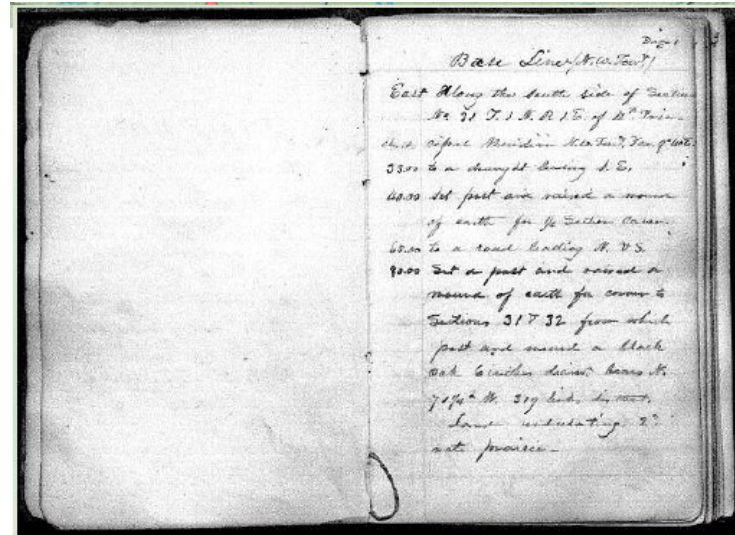 Page 1
Base Line (N.W. Terr.)
East Along the south side of Section
No. 31 T. 1 N. R 1 E. of 4th Prin-
cipal Meridian N.W. Terr.
33.00 to a draught leading S. E.
40.00 Set post and raised a mound
of earth for 1/4 Section Corner
65.00 To a road leading N. & S.
80.00 Set a post and raised a
mound of earth for corner to
Sections 31 & 32 from which
post and mound a black
oak 6 inches diamr. bears N.
W. 319 links distant.
Land undulating 2d
rate prairie.